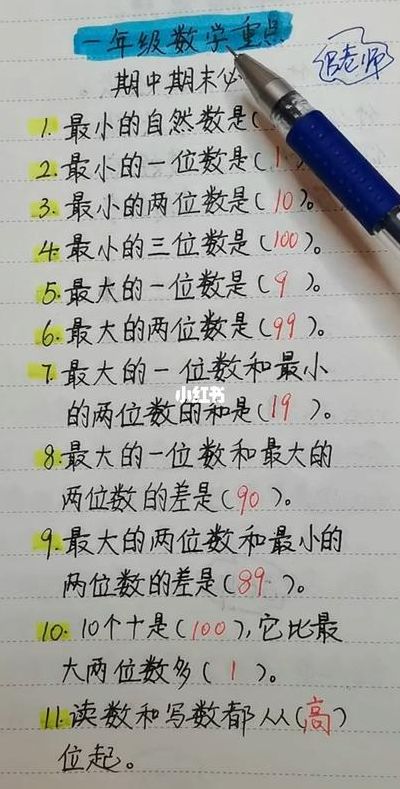 一年级数学重点
吕老师
期中期末必
1. 最小的自然数是(
2. 最小的一位数是(1)。
3. 最小的两位数是(10)。
4. 最小的三位数是(100)。
5. 最大的一位数是(9)。
6. 最大的两位数是(99)。
7. 最大的一位数和最小
的两位数的和是(19)。
小红书
8. 最大的一位数和最大的
两位数的差是(90)。
9. 最大的两位数和最小的
两位数的差是(89)。
10. 10个十是(100),它比最
大两位数多(1)。
11. 读数和写数都从(高)
位起。